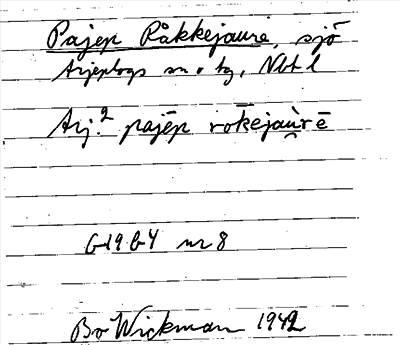 Pajep Råkkejaure, sjö
Arjeplogs sn o tg, Nbt l
Arj.2 pajēp rokējau̯rē
G19 b4 nr 8
Bo Wickman 1942